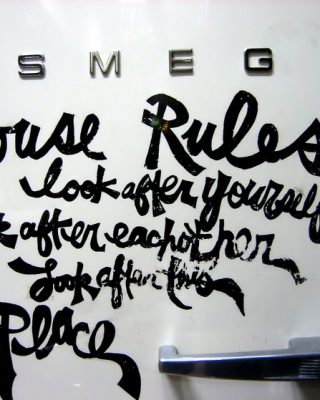 SMEG
ouse Rules
look after yourself
k after eachother
Look after this
Place